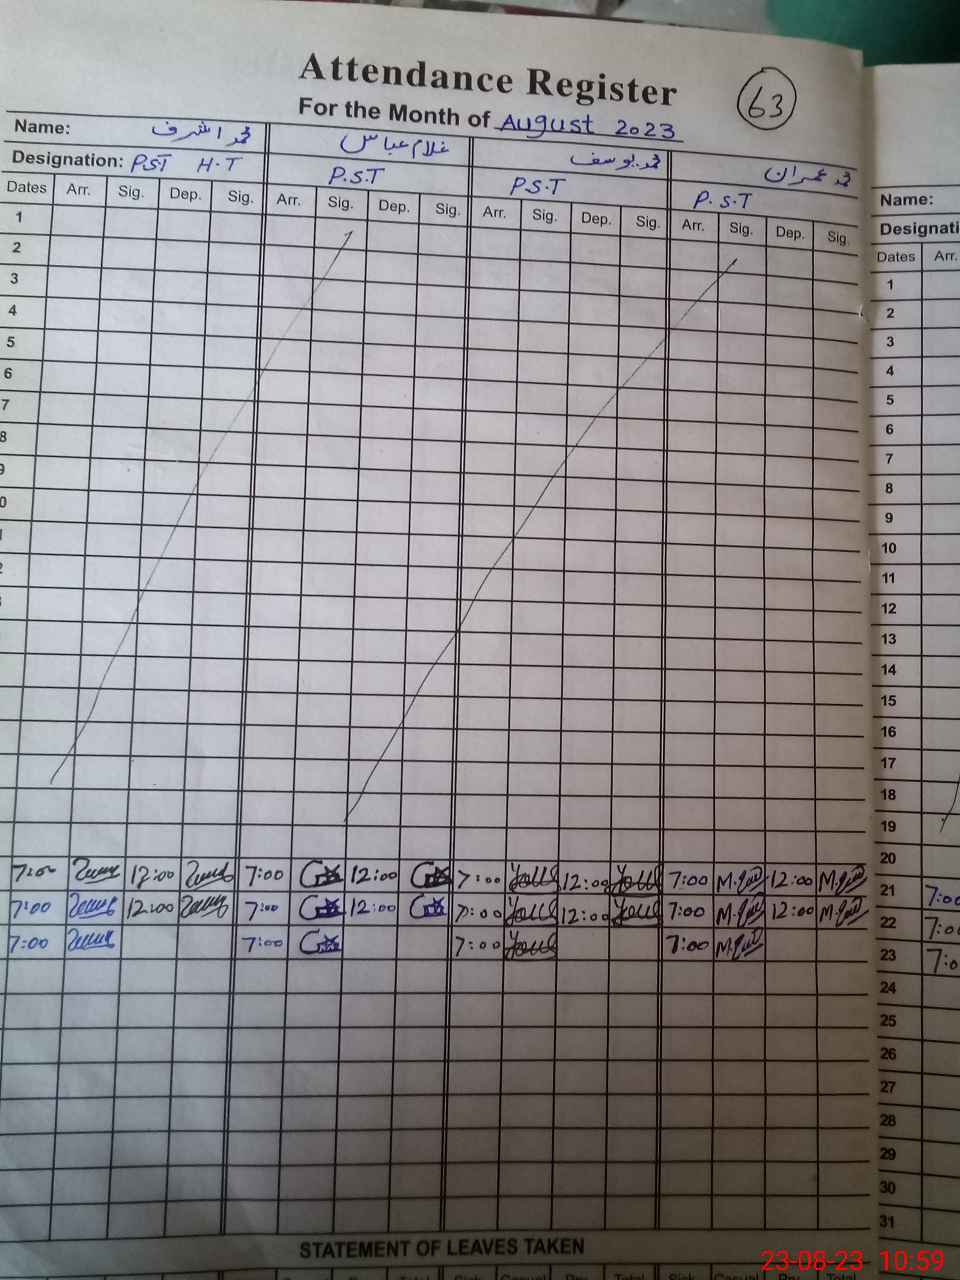 Attendance Register
63
For the Month of August 2023
Name: محمد اشرف غلام عباس محمد یوسف محمد عمران
Designation: P.S.T H.T P.S.T P.S.T P.S.T
Dates Arr. Sig. Dep. Sig. Arr. Sig. Dep. Sig. Arr. Sig. Dep. Sig. Arr. Sig. Dep. Sig.
1
2
3
4
5
6
7
8
9
0
1
2
3
7:00 12:00 7:00 12:00 7:00 12:00 7:00 12:00
7:00 12:00 7:00 12:00 7:00 12:00 7:00 12:00
7:00 7:00 7:00 7:00
STATEMENT OF LEAVES TAKEN
Name:
Designati
Dates Arr.
1
2
3
4
5
6
7
8
9
10
11
12
13
14
15
16
17
18
19
20
21 7:00
22 7:00
23 7:0
24
25
26
27
28
29
30
31
23-08-23 10:59